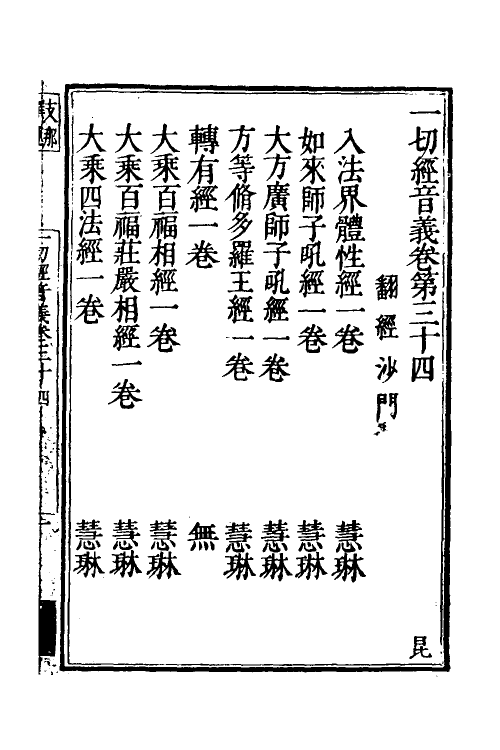 一切經音義卷第三十四
昆
翻經沙門
入法界體性經一卷 慧琳
如來師子吼經一卷 慧琳
大方廣師子吼經一卷 慧琳
方等脩多羅王經一卷 慧琳
轉有經一卷 無
大乘百福相經一卷 慧琳
大乘百福莊嚴相經一卷 慧琳
大乘四法經一卷 慧琳
支那
一切經音義卷三十四